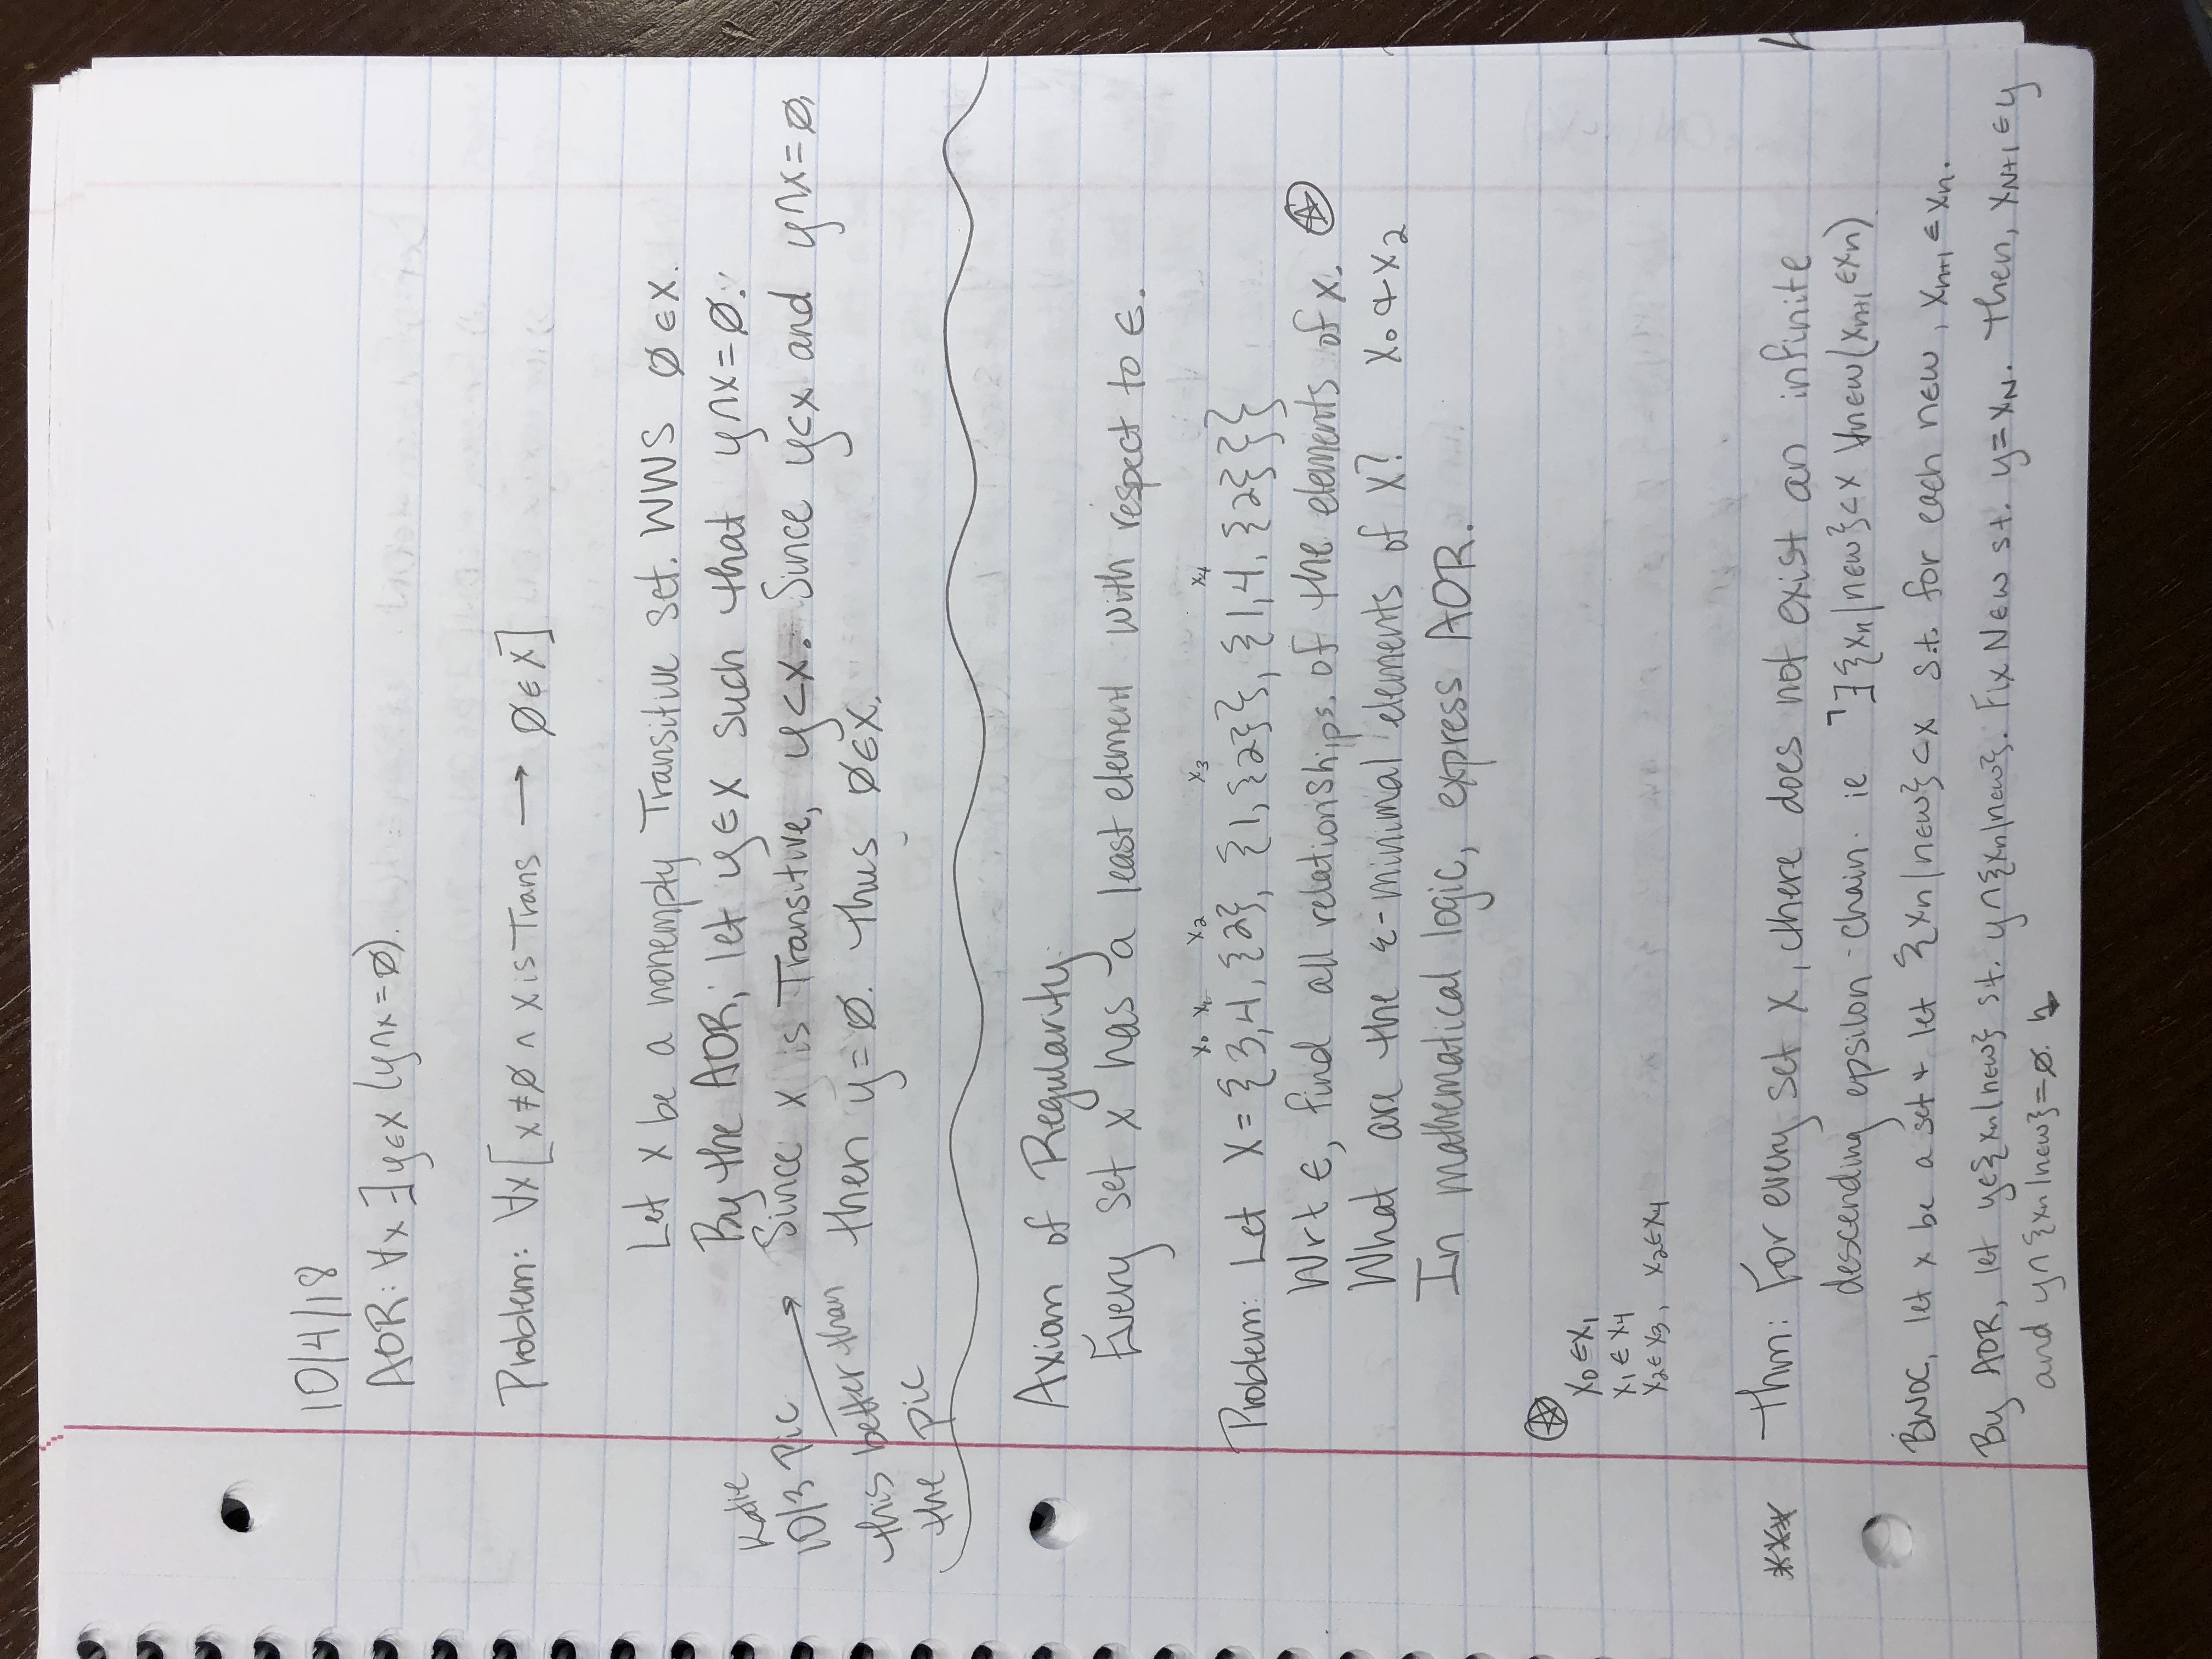 10/4/18
AOR: ∀x ∃y∈x (y∩x=∅).
Problem: ∀x[x≠∅ ∧ x is Trans → ∅∈x]
Let x be a nonempty Transitive set. WWS ∅∈x.
By the AOR, let y∈x such that y∩x=∅.
Since x is Transitive, y⊂x. Since y⊂x and y∩x=∅,
then y=∅. Thus ∅∈x.
Katie
10/3 Pic
this better than
the pic
Axiom of Regularity:
Every set x has a least element with respect to ∈.
x₀ x₁ x₂ x₃ x₄
Problem: Let X = {3,4, {2}, {1, {2}}, {1,4, {2}}}
Wrt ∈, find all relationships of the elements of x. ⍟
What are the ε-minimal elements of X? x₀ & x₂
In mathematical logic, express AOR.
⍟
x₀∈x₁
x₁∈x₄
x₂∈x₃, x₂∈x₄
*** Thm: For every set x, there does not exist an infinite
descending epsilon-chain. ie ¬∃{xₙ|n∈ω}⊂x ∀n∈ω(xₙ₊₁∈xₙ)
BWOC, let x be a set & let {xₙ|n∈ω}⊂x s.t. for each n∈ω, xₙ₊₁∈xₙ.
By AOR, let y∈{xₙ|n∈ω} st. y∩{xₙ|n∈ω}. Fix N∈ω st. y=x_N. Then, x_N+1∈y
and y∩{xₙ|n∈ω}=∅. ↯